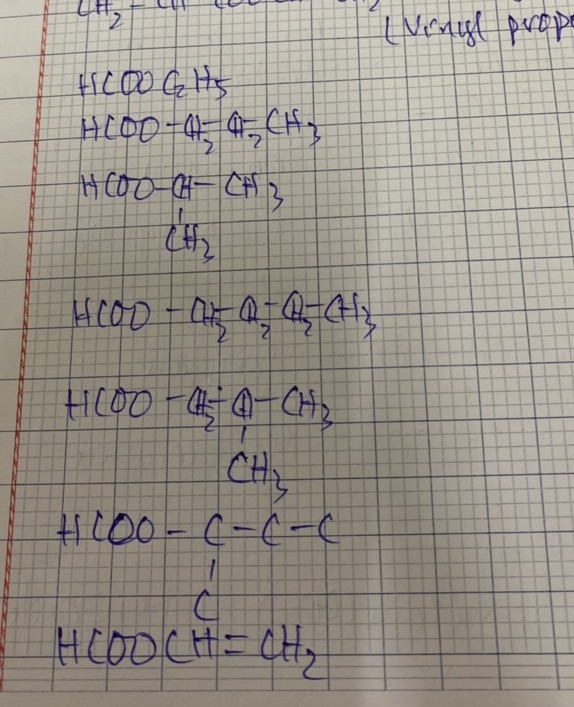 (Vinyl
HCOOC2H5
HCOO-CH2-CH2CH3
HCOO-CH-CH3
|
CH3
HCOO-CH2-CH2-CH2-CH3
HCOO-CH2-CH-CH3
|
CH3
HCOO-C-C-C
|
C
HCOOCH=CH2